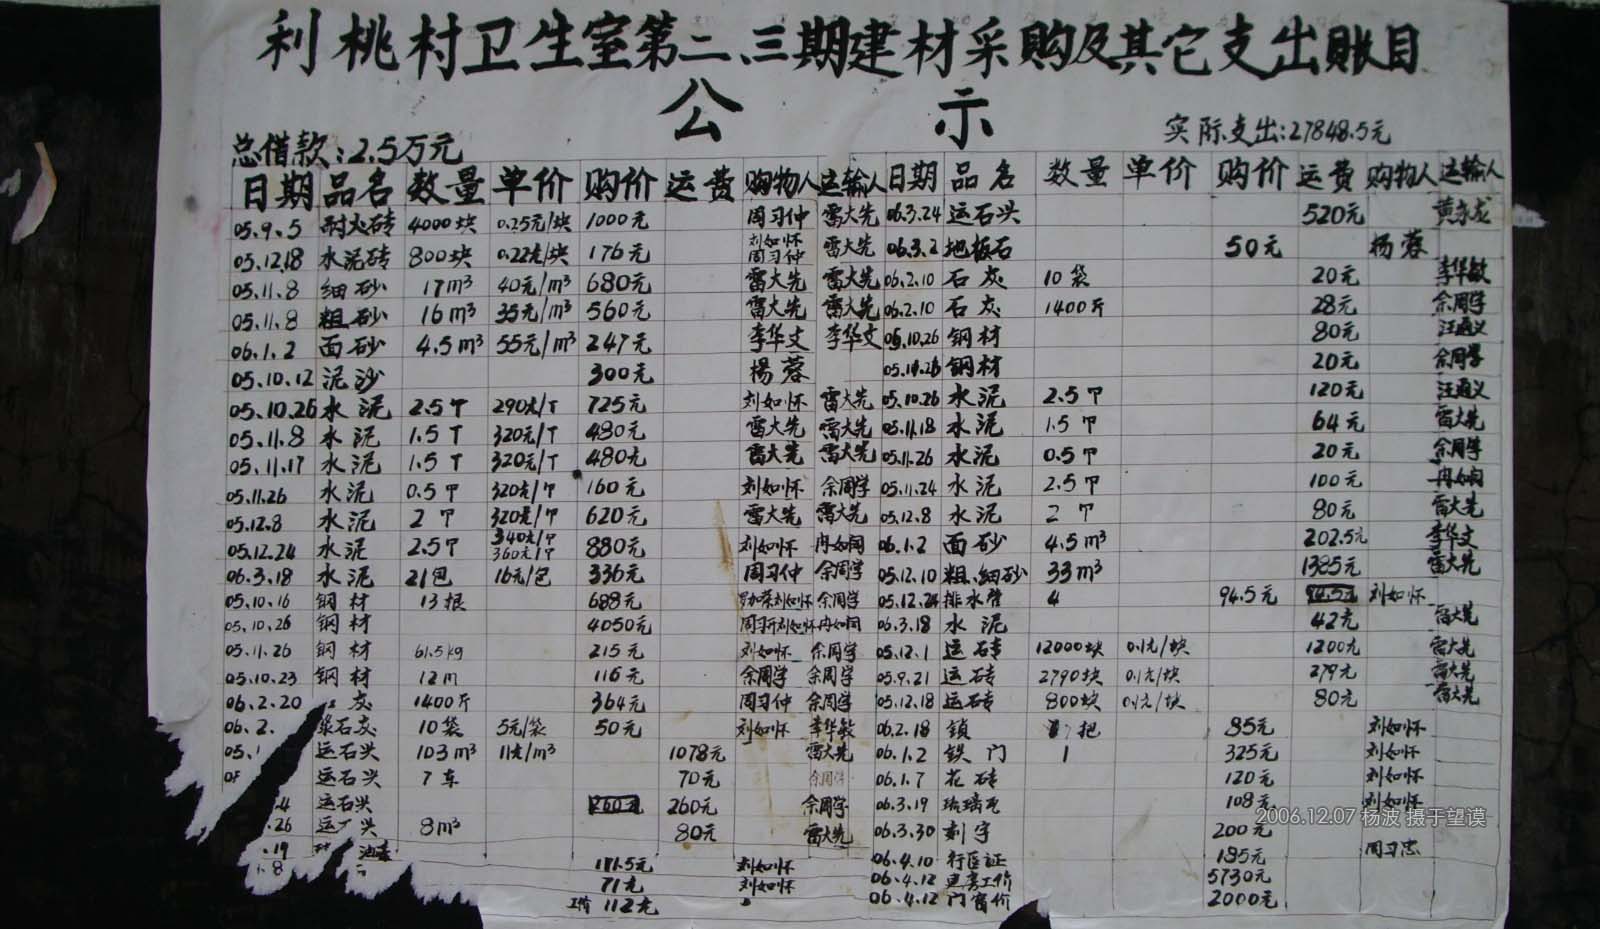 利桃村卫生室第二、三期建材采购及其它支出账目
公示
总借款:2.5万元 实际支出:27848.5元
日期 品名 数量 单价 购价 运费 购物人 运输人 日期 品名 数量 单价 购价 运费 购物人 运输人
05.9.5 耐火砖 4000块 0.25元/块 1000元 周习仲 雷大先 06.3.24 运石头 520元 黄永龙
05.12.18 水泥砖 800块 0.22元/块 176元 刘如怀 周习仲 雷大先 06.3.2 地板石 50元 杨蓉
05.11.8 细砂 17m³ 40元/m³ 680元 雷大先 雷大先 06.2.10 石灰 10袋 20元 李华敏
05.11.8 粗砂 16m³ 35元/m³ 560元 雷大先 雷大先 06.2.10 石灰 1400斤 28元 余周学
06.1.2 面砂 4.5m³ 55元/m³ 247元 李华文 李华文 05.10.26 钢材 80元 汪通义
05.10.12 泥沙 300元 杨蓉 钢材 20元 余周学
05.10.26 水泥 2.5T 290元/T 725元 刘如怀 雷大先 05.10.26 水泥 2.5T 120元 汪通义
05.11.8 水泥 1.5T 320元/T 480元 雷大先 雷大先 05.11.18 水泥 1.5T 64元 雷大先
05.11.17 水泥 1.5T 320元/T 480元 雷大先 雷大先 05.11.26 水泥 0.5T 20元 余周学
05.11.26 水泥 0.5T 320元/T 160元 刘如怀 余周学 05.11.24 水泥 2.5T 100元 冉如闯
05.12.8 水泥 2T 320元/T 620元 雷大先 雷大先 05.12.8 水泥 2T 80元 雷大先
05.12.24 水泥 2.5T 340元/T 360元/T 880元 刘如怀 冉如闯 06.1.2 面砂 4.5m³ 202.5元 李华文
06.3.18 水泥 21包 16元/包 336元 周习仲 余周学 05.12.10 粗、细砂 33m³ 1385元 雷大先
05.10.16 钢材 13根 688元 刘如怀 余周学 05.12.24 排水管 4 94.5元 刘如怀
05.10.26 钢材 4050元 刘如怀 冉如闯 06.3.18 水泥 42元 雷大先
05.11.26 钢材 61.5kg 215元 刘如怀 余周学 05.12.1 运石砖 12000块 0.1元/块 1200元 雷大先
05.10.23 钢材 12m 116元 余周学 余周学 05.9.21 运石砖 2790块 0.1元/块 279元 雷大先
06.2.20 灰 1400斤 364元 周习仲 余周学 05.12.18 运石砖 800块 0.1元/块 80元 雷大先
06.2. 石灰 10袋 5元/袋 50元 刘如怀 李华敏 06.2.18 锁 把 85元 刘如怀
05.1 运石头 103m³ 11元/m³ 1078元 雷大先 06.1.2 铁门 1 325元 刘如怀
运石头 7车 70元 余周学 06.1.7 花砖 120元 刘如怀
运石头 260元 260元 余周学 06.3.19 琉璃瓦 108元 刘如怀
.26 运 头 8m³ 80元 雷大先 06.3.30 刻字 200元
.19 油漆 周习忠
.8 171.5元 刘如怀 06.4.10 行医证 195元
71元 刘如怀 06.4.12 工价 5730元
工价 112元 06.4.12 门窗价 2000元
2006.12.07 杨波 摄于望谟